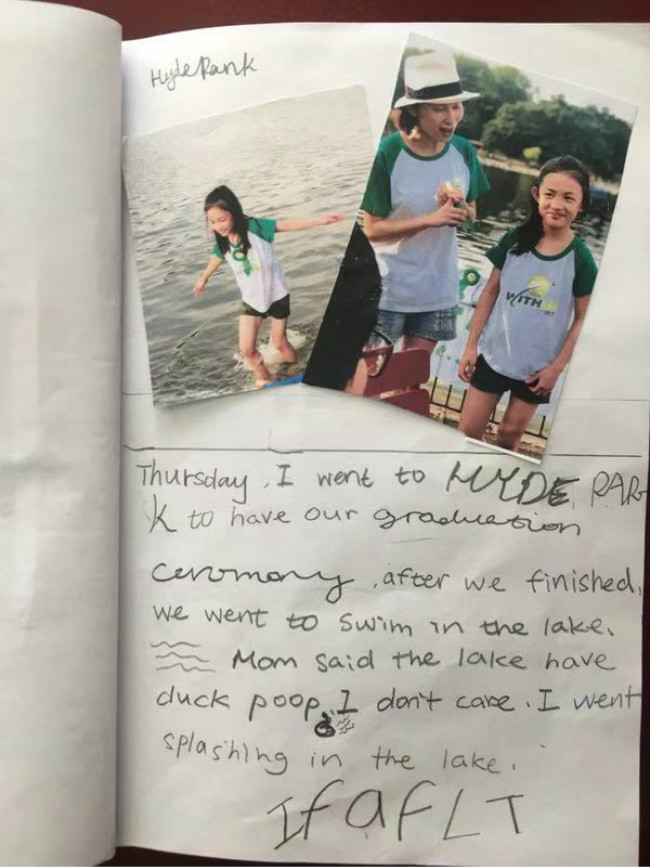 HydePank
WITH
Thursday, I went to HYDE PAR-
K to have our graduation
ceromony, after we finished,
we went to swim in the lake.
Mom said the lake have
duck poop, I don't care. I went
splashing in the lake.
IfaFLT